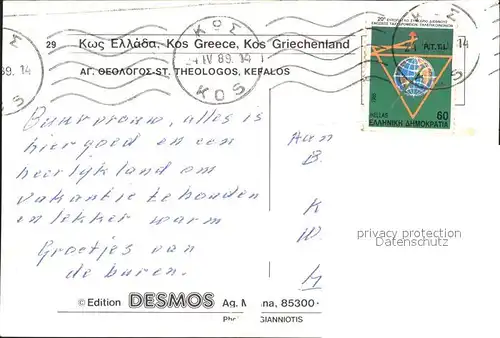 29 Κως Ελλάδα, Kos Greece, Kos Griechenland
ΑΓ. ΘΕΟΛΟΓΟΣ-ST. THEOLOGOS, KEFALOS
ΚΩΣ
IV 89. 14
KOS
89. 14
20ο ΕΥΡΩΠΑΪΚΟ ΣΥΝΕΔΡΙΟ ΔΙΕΘΝΟΥΣ
ΕΝΩΣΕΩΣ ΤΑΧΥΔΡΟΜΙΚΩΝ ΤΗΛΕΠΙΚΟΙΝΩΝΙΩΝ
HELLAS 60
ΕΛΛΗΝΙΚΗ ΔΗΜΟΚΡΑΤΙΑ
Buurvrouw, alles is
hier goed en een
heerlijk land om
vakantie te houden
en lekker warm
Groetjes van
de buren.
Aan
B.
K
W
privacy protection
Datenschutz
© Edition DESMOS Ag. M na, 85300 -
Pho GIANNIOTIS